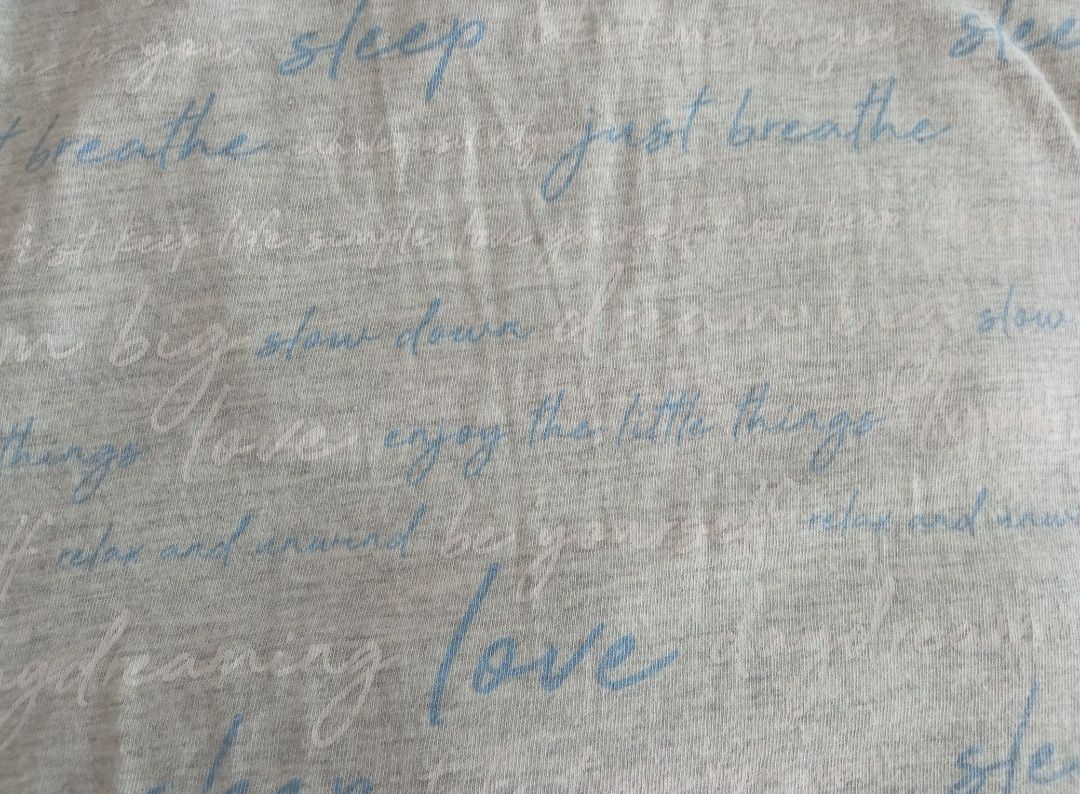 you sleep you slee
t breathe just breathe
just keep life simple keep
m big slow down dream big slow
things love enjoy the little things
f relax and unwind be yourself relax and unwi
ydreaming love daydream
sleep sle